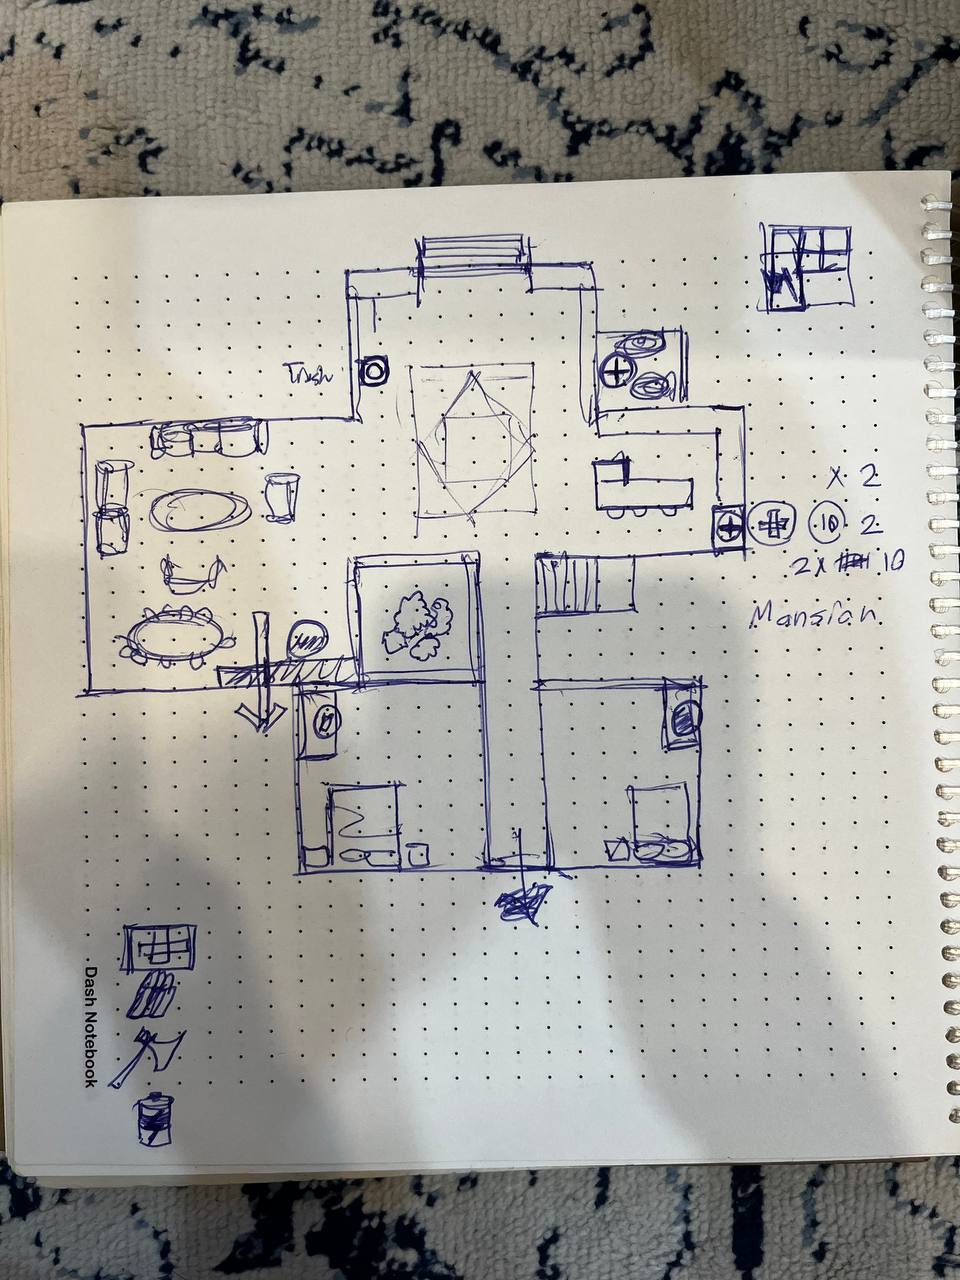 Trash
x 2
10 2
2 x 10
Mansian
Dash Notebook